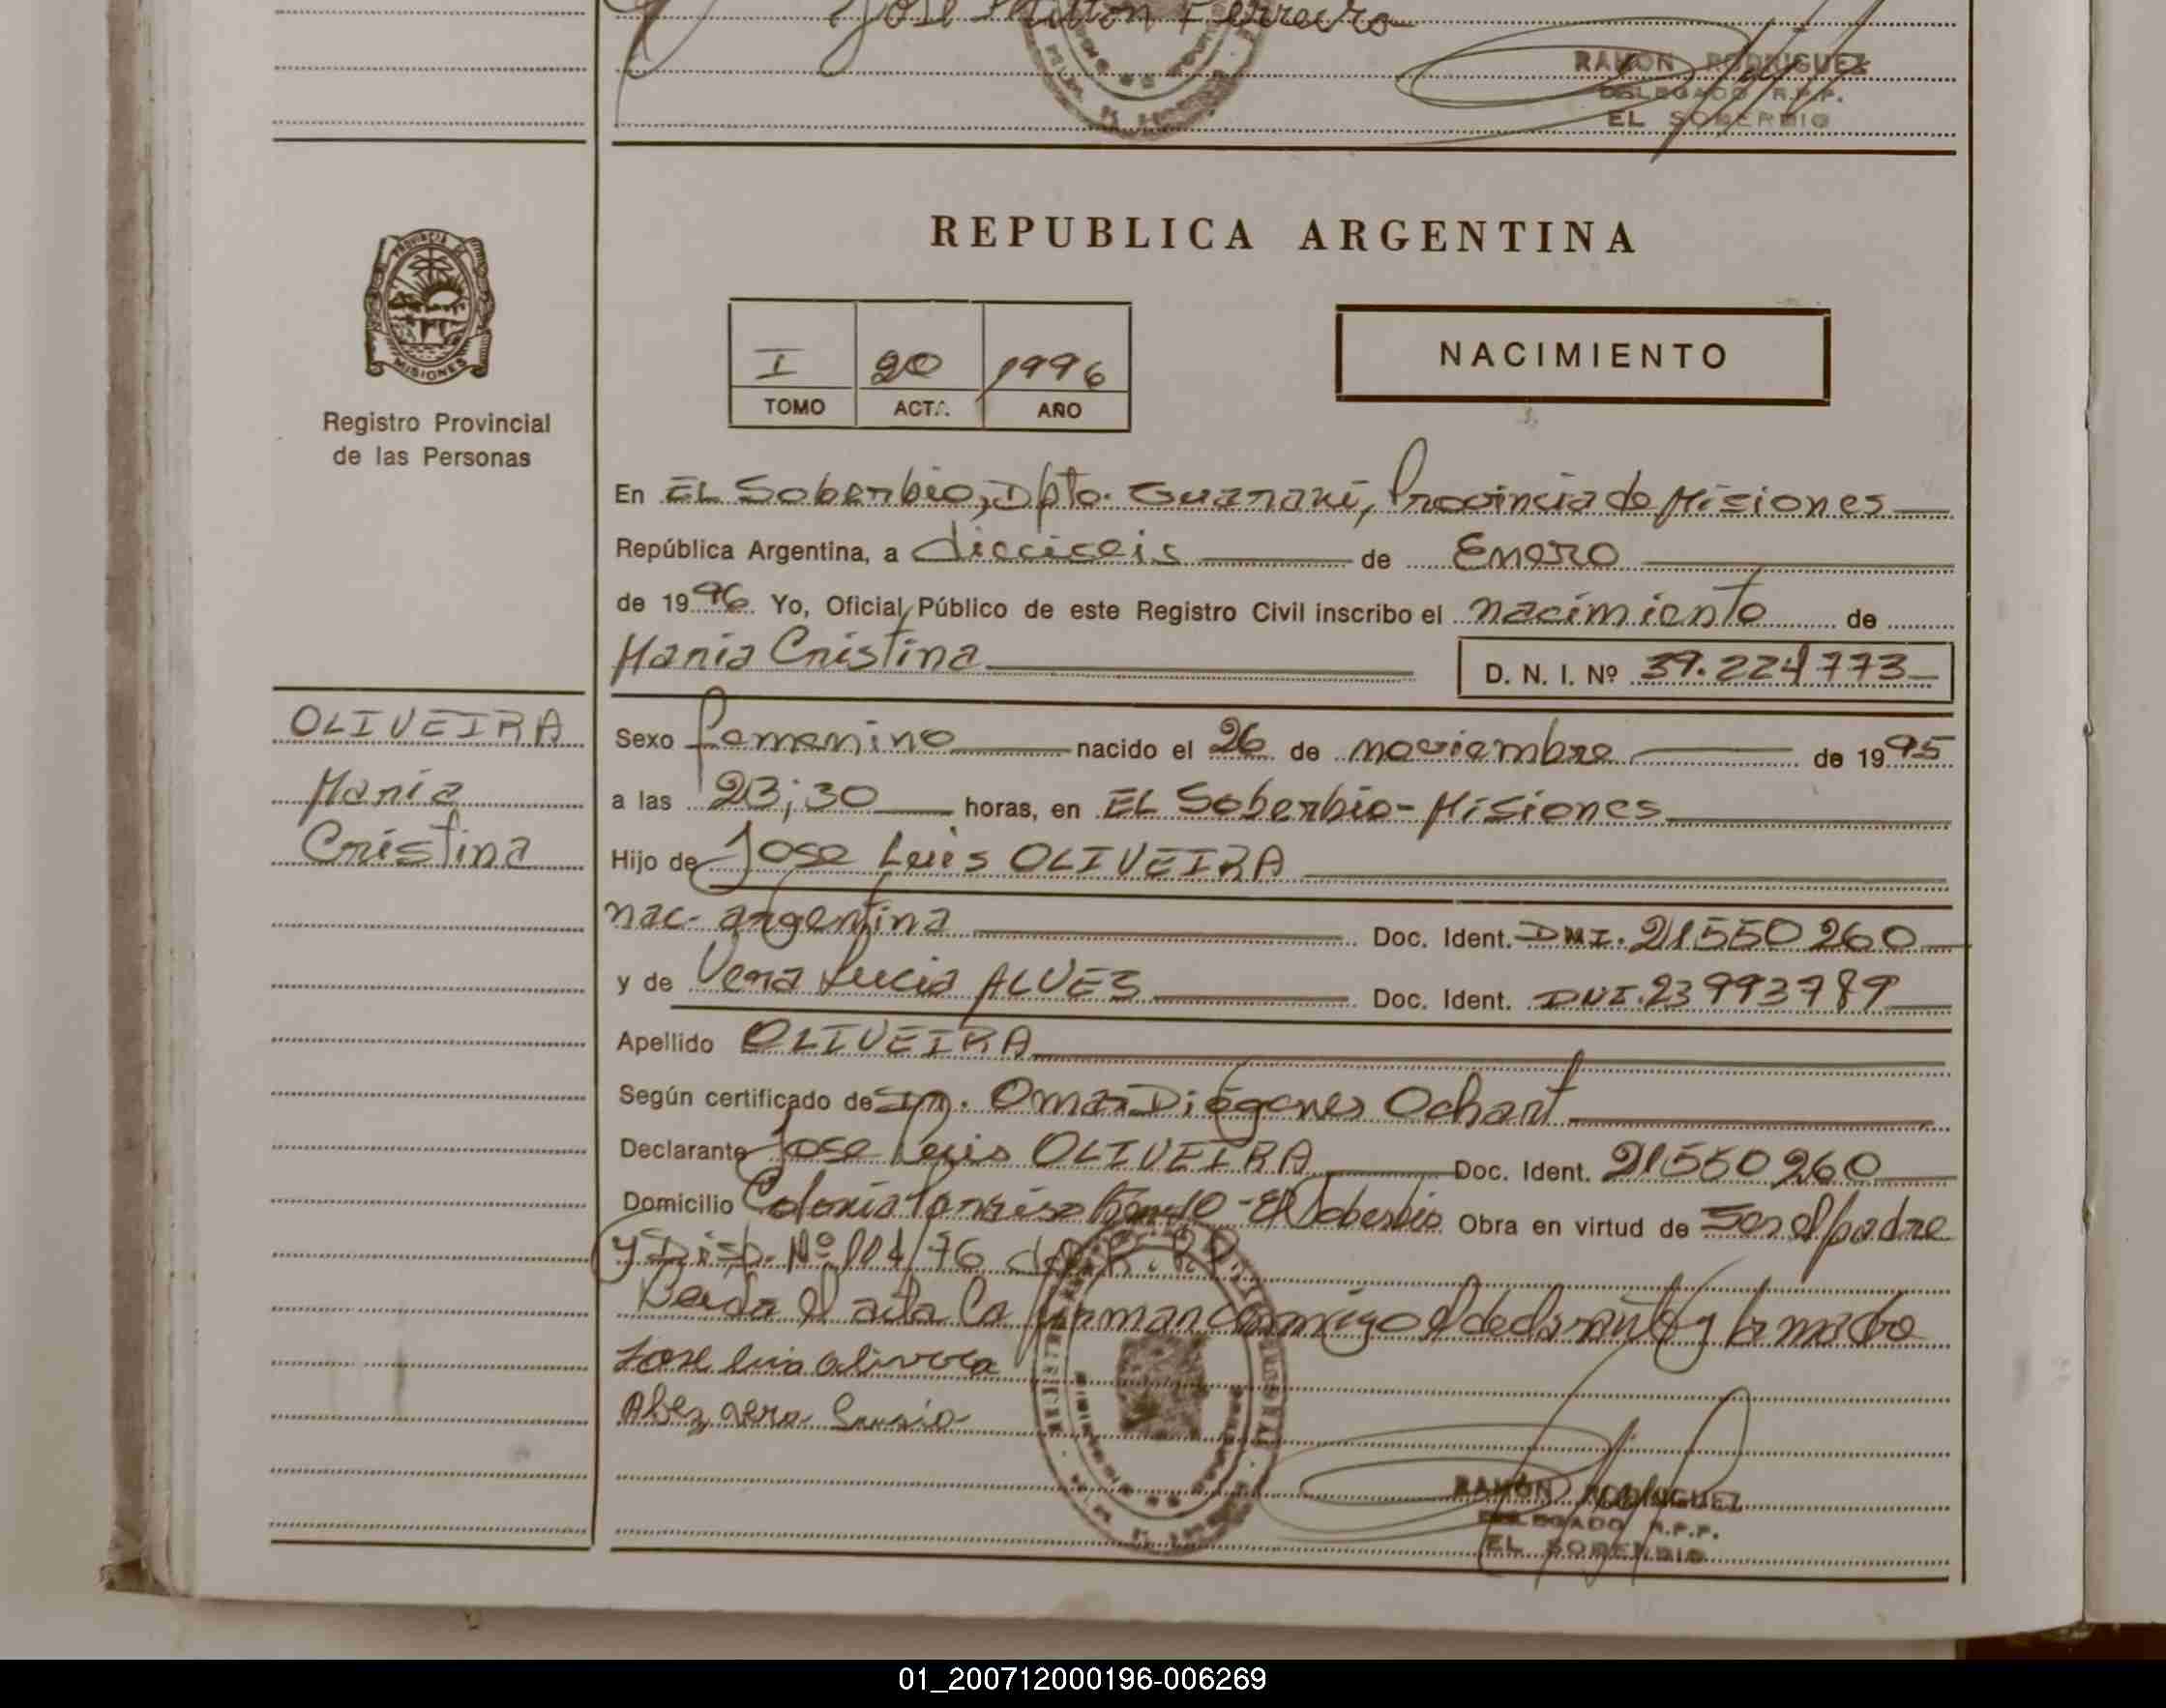 Jose Milton Ferreira
RAMON RODRIGUEZ
DELEGADO R.P.P.
EL SOBERBIO
PROVINCIA DE
MISIONES
Registro Provincial
de las Personas
REPUBLICA ARGENTINA
I 20 1996
TOMO ACTA AÑO
NACIMIENTO
En EL Soberbio, Dpto. Guaraní, Provincia de Misiones
República Argentina, a dieciseis de Enero
de 1996 Yo, Oficial Público de este Registro Civil inscribo el nacimiento de
Maria Cristina D. N. I. Nº 39.224773
OLIVEIRA
Maria
Cristina
Sexo femenino nacido el 26 de noviembre de 1995
a las 23;30 horas, en EL Soberbio-Misiones
Hijo de Jose Luis OLIVEIRA
nac. argentina Doc. Ident. DNI. 21550260
y de Vera Lucia ALVES Doc. Ident. DNI. 23993789
Apellido OLIVEIRA
Según certificado de Omar Diógenes Ochart
Declarante Jose Luis OLIVEIRA Doc. Ident. 21550260
Domicilio Colonia - El Soberbio Obra en virtud de Ser el padre
y Disp. Nº 104/76 del R.P.P.
Leida el acta la firman conmigo el declarante y la madre
Jose luis olivera
Alvez vera Lucia
RAMON RODRIGUEZ
DELEGADO R.P.P.
EL SOBERBIO
01_200712000196-006269